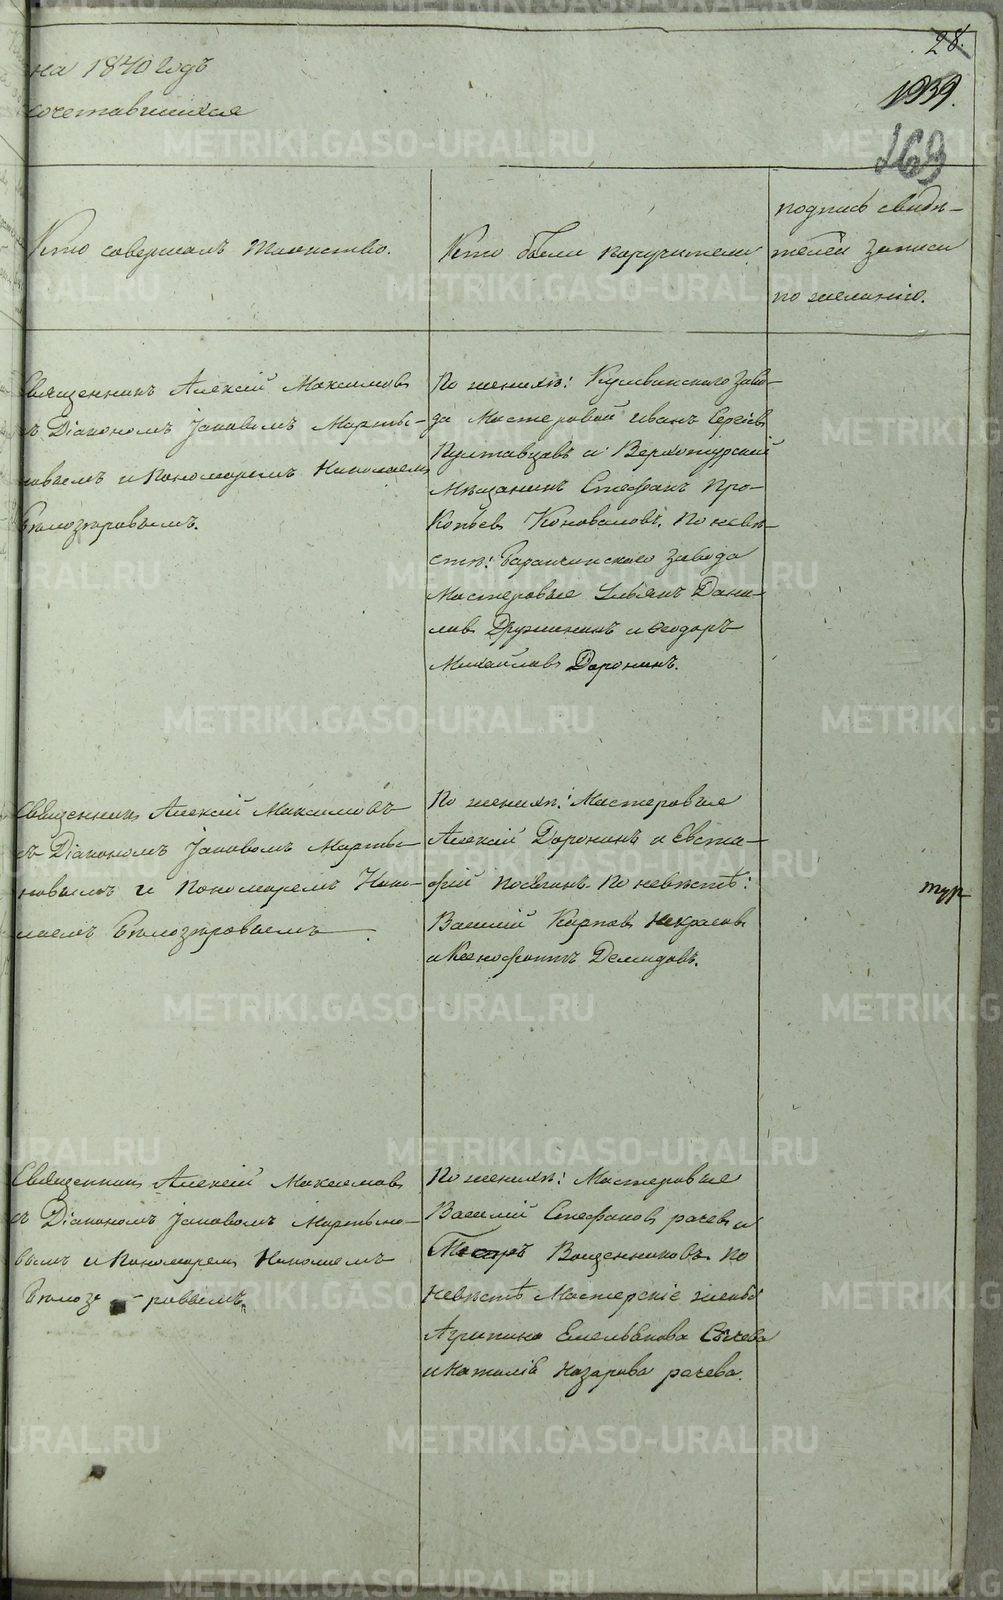 28.
на 1840 годъ
1939.
сочетавшихся
269
Кто совершалъ Таинство.
Кто были поручители
подпись свидѣ-
телей записи
по желанію.
Священникъ Алексій Максимовъ
съ Діакономъ Іаковомъ Марты-
новымъ и Пономаремъ Николаемъ
Бѣлозеровымъ.
По женихѣ: Кушвинскаго заво-
да Мастеровой Иванъ Сергѣевъ
Полтавцовъ и Верхотурскій
Мѣщанинъ Стефанъ Про-
копьевъ Коноваловъ. По невѣ-
стѣ: Баранчинскаго завода
Мастеровые Ульянъ Дани-
ловъ Дружининъ и Ѳеодоръ
Михайловъ Доронинъ.
Священникъ Алексій Максимовъ
съ Діакономъ Іаковомъ Марты-
новымъ и Пономаремъ Нико-
лаемъ Бѣлозеровымъ
По женихѣ: Мастеровые
Алексій Доронинъ и Евста-
фій Посягинъ. По невѣстѣ:
Василій Карповъ Некрасовъ
и Ксенофонтъ Демидовъ.
Священникъ Алексій Максимовъ
съ Діакономъ Іаковомъ Мартыно-
вымъ и Пономаремъ Николаемъ
Бѣлозе - ровымъ.
По женихѣ: Мастеровые
Василій Стефановъ рачевъ и
Ващенниковъ. По
невѣстѣ Мастерскіе жены
Агрипина Емельянова Сычева
и Наталія Назарова рачева.
METRIKI.GASO-URAL.RU